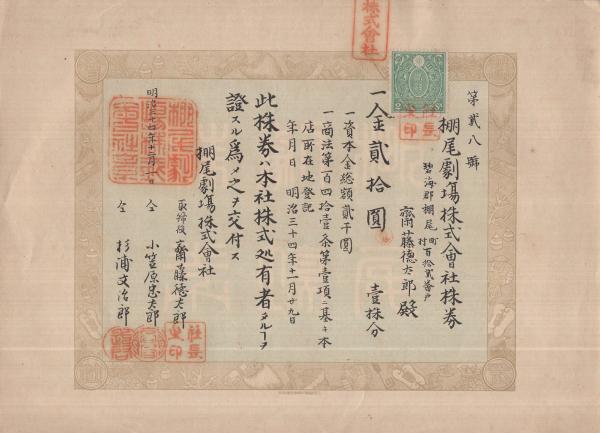 株式會社
第貳八號
棚尾劇場株式會社株券
碧海郡棚尾町村百拾貳番戸
齋藤德太郎殿
一金貳拾圓 壹株分
一資本金総額貳千圓
一商法第百四拾壹条第壹項ニ基キ本
店所在地登記
年月日 明治三十四年十一月廿九日
此株券ハ本社株式処有者タルヿヲ
證スル為メ之ヲ交付ス
棚尾劇場株式會社
明治三十四年十二月一日
取締役 齋藤德太郎
仝 小笠原忠太郎
仝 杉浦文治郎
社長之印
社長之印